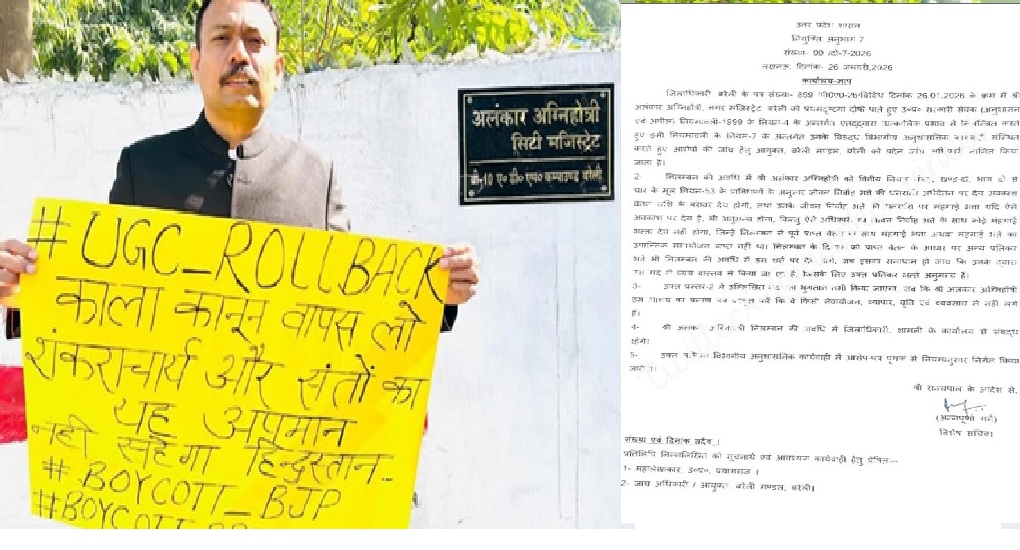 #UGC_ROLLBACK
काला कानून वापस लो
शंकराचार्य और संतों का
यह अपमान
नही सहेगा हिन्दुस्तान...
#BOYCOTT_BJP
#BOYCOTT
अलंकार अग्निहोत्री
सिटी मजिस्ट्रेट
बी-10 ए० डी० एम० कम्पाउण्ड बरेली
उत्तर प्रदेश शासन
नियुक्ति अनुभाग-7
संख्या- 90 /दो-7-2026
लखनऊ, दिनांक- 26 जनवरी, 2026
कार्यालय-ज्ञाप
जिलाधिकारी, बरेली के पत्र संख्या- 899 दिनांक 26.01.2026 के क्रम में श्री
अलंकार अग्निहोत्री, नगर मजिस्ट्रेट, बरेली को प्रथमदृष्टया दोषी पाते हुए उ०प्र० सरकारी सेवक (अनुशासन
एवं अपील) नियमावली-1999 के नियम-4 के अन्तर्गत एतद्द्वारा तात्कालिक प्रभाव से निलम्बित करते
हुए इसी नियमावली के नियम-7 के अन्तर्गत उनके विरूद्ध विभागीय अनुशासनिक कार्यवाही संस्थित
करते हुए आरोपों की जांच हेतु आयुक्त, बरेली मण्डल, बरेली को पदेन जांच अधिकारी नामित किया
जाता है।
2- निलम्बन की अवधि में श्री अलंकार अग्निहोत्री को वित्तीय नियम संग्रह, खण्ड-दो, भाग दो से
चार के मूल नियम-53 के प्राविधानों के अनुसार जीवन निर्वाह भत्ते की धनराशि अर्धवेतन पर देय अवकाश
वेतन राशि के बराबर देय होगी, तथा उनके जीवन निर्वाह भत्ते की धनराशि पर महंगाई भत्ता यदि ऐसे
अवकाश पर देय है, भी अनुमन्य होगा, किन्तु ऐसे अधिकारी को जीवन निर्वाह भत्ते के साथ कोई मंहगाई
भत्ता देय नहीं होगा, जिन्हें निलम्बन से पूर्व प्राप्त वेतन के साथ महंगाई भत्ता अथवा महंगाई भत्ते का
उपान्तिक समायोजन प्राप्त नहीं था। निलम्बन के दिनांक को प्राप्त वेतन के आधार पर अन्य प्रतिकर
भत्ते भी निलम्बन की अवधि में इस शर्त पर देय होंगे, जब इसका समाधान हो जाय कि उनके द्वारा
उस मद में व्यय वास्तव में किया जा रहा है, जिसके लिए उक्त प्रतिकर भत्ते अनुमन्य है।
3- उक्त प्रस्तर-2 में उल्लिखित मद का भुगतान तभी किया जाएगा, जब कि श्री अलंकार अग्निहोत्री
इस आशय का प्रमाण पत्र प्रस्तुत करें कि वे किसी सेवायोजन, व्यापार, वृत्ति एवं व्यवसाय से नहीं लगे
हैं।
4- श्री अलंकार अग्निहोत्री निलम्बन की अवधि में जिलाधिकारी, शामली के कार्यालय से संबद्ध
रहेंगे।
5- उक्त विभागीय अनुशासनिक कार्यवाही में आरोप-पत्र पृथक से नियमानुसार निर्गत किया
जायेगा।
श्री राज्यपाल के आदेश से,
(अन्नपूर्णा गर्ग)
विशेष सचिव।
संख्या एवं दिनांक तदैव।
प्रतिलिपि निम्नलिखित को सूचनार्थ एवं आवश्यक कार्यवाही हेतु प्रेषित:-
1- महालेखाकार, उ०प्र०, प्रयागराज।
2- जांच अधिकारी / आयुक्त, बरेली मण्डल, बरेली।